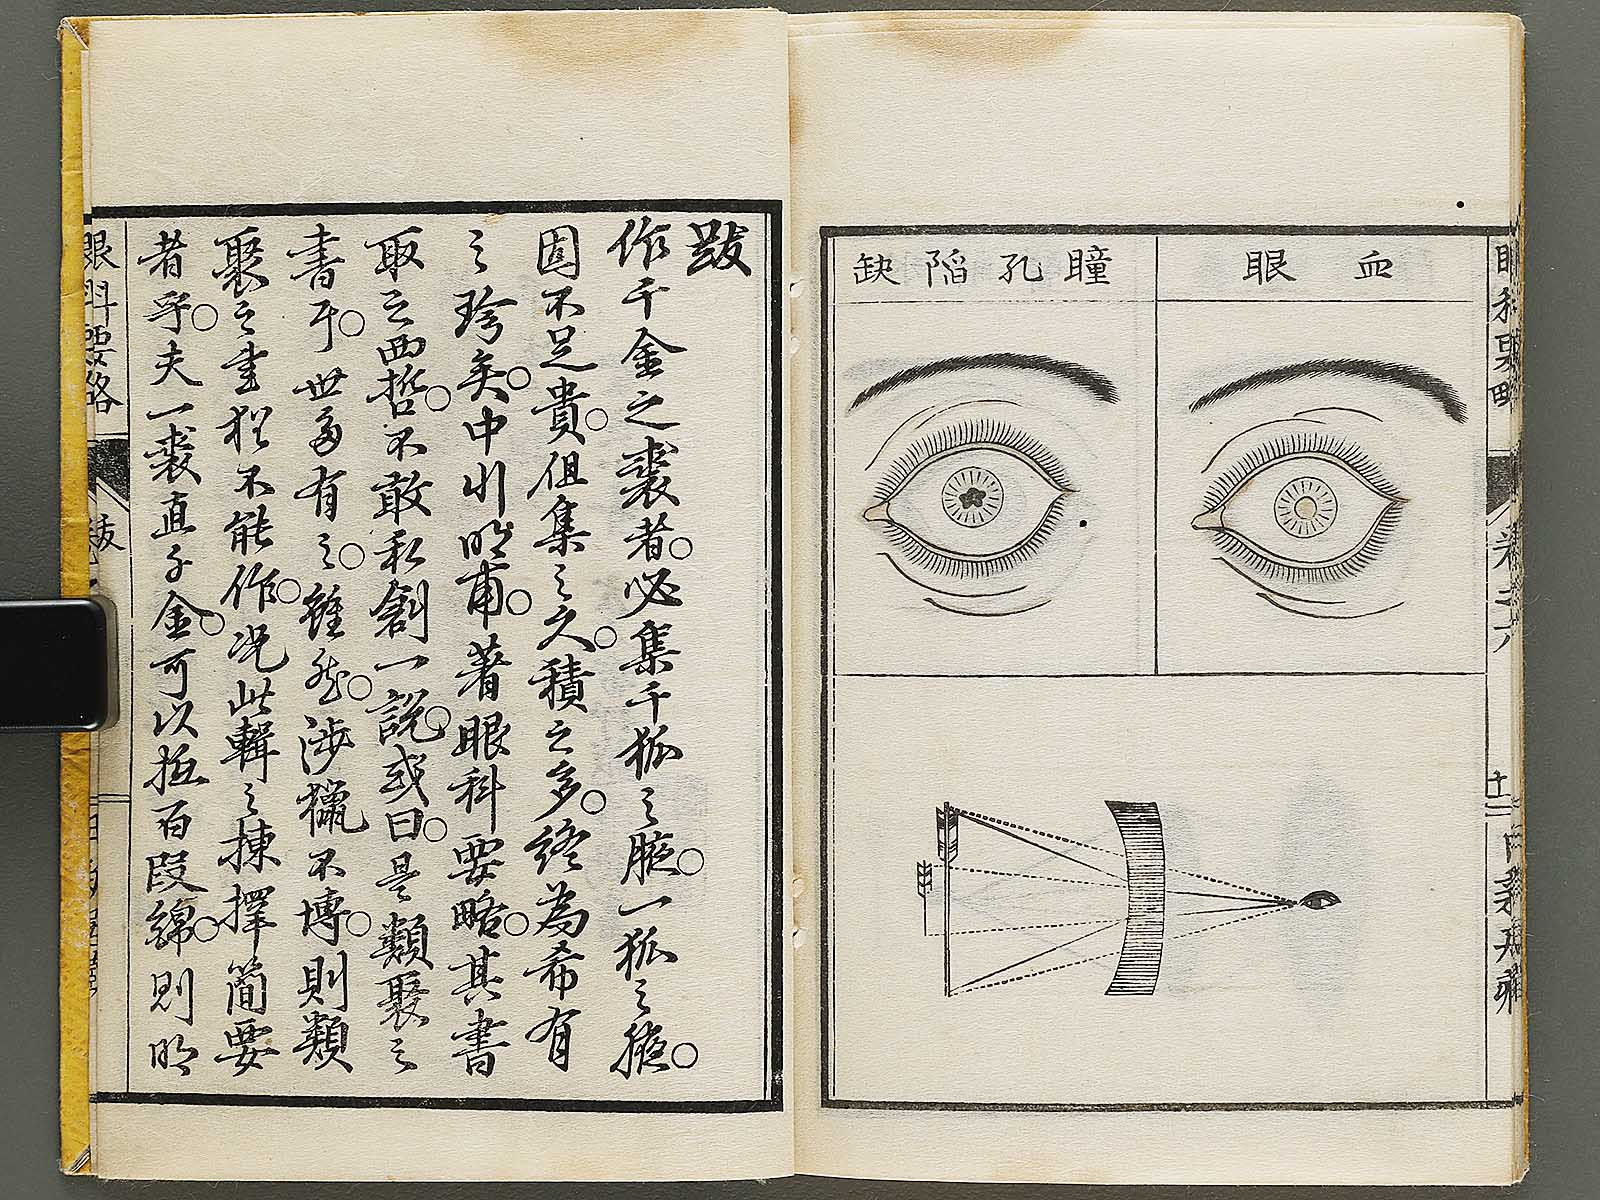 血眼
瞳孔陷缺
跋
作千金之裘者必集千狐之腋一狐之腋
固不足貴但集之久積之多終為希有
之珍矣中川明甫著眼科要略其書
取之西哲不敢私創一說或曰是類聚之
書耳世多有之雖然涉獵不博則類
聚之書猶不能作況此輯之揀擇簡要
者乎夫一裘直千金可以抵百段綿則明
眼科要略
跋